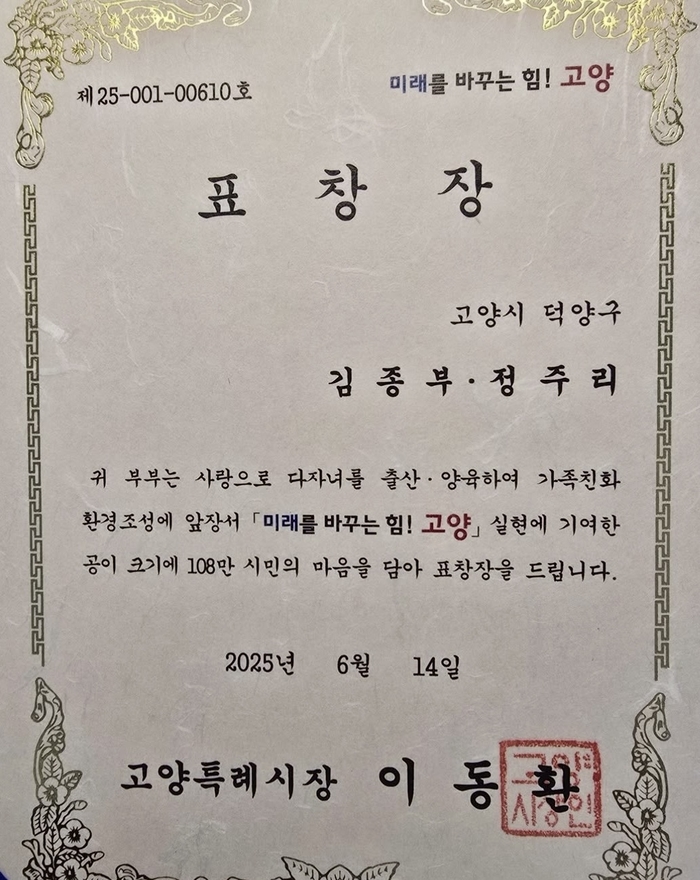 제25-001-00610호
미래를 바꾸는 힘! 고양
표 창 장
고양시 덕양구
김 종 부 · 정 주 리
귀 부부는 사랑으로 다자녀를 출산 · 양육하여 가족친화
환경조성에 앞장서 「미래를 바꾸는 힘! 고양」 실현에 기여한
공이 크기에 108만 시민의 마음을 담아 표창장을 드립니다.
2025년 6월 14일
고양특례시장 이 동 환
고양
시장인